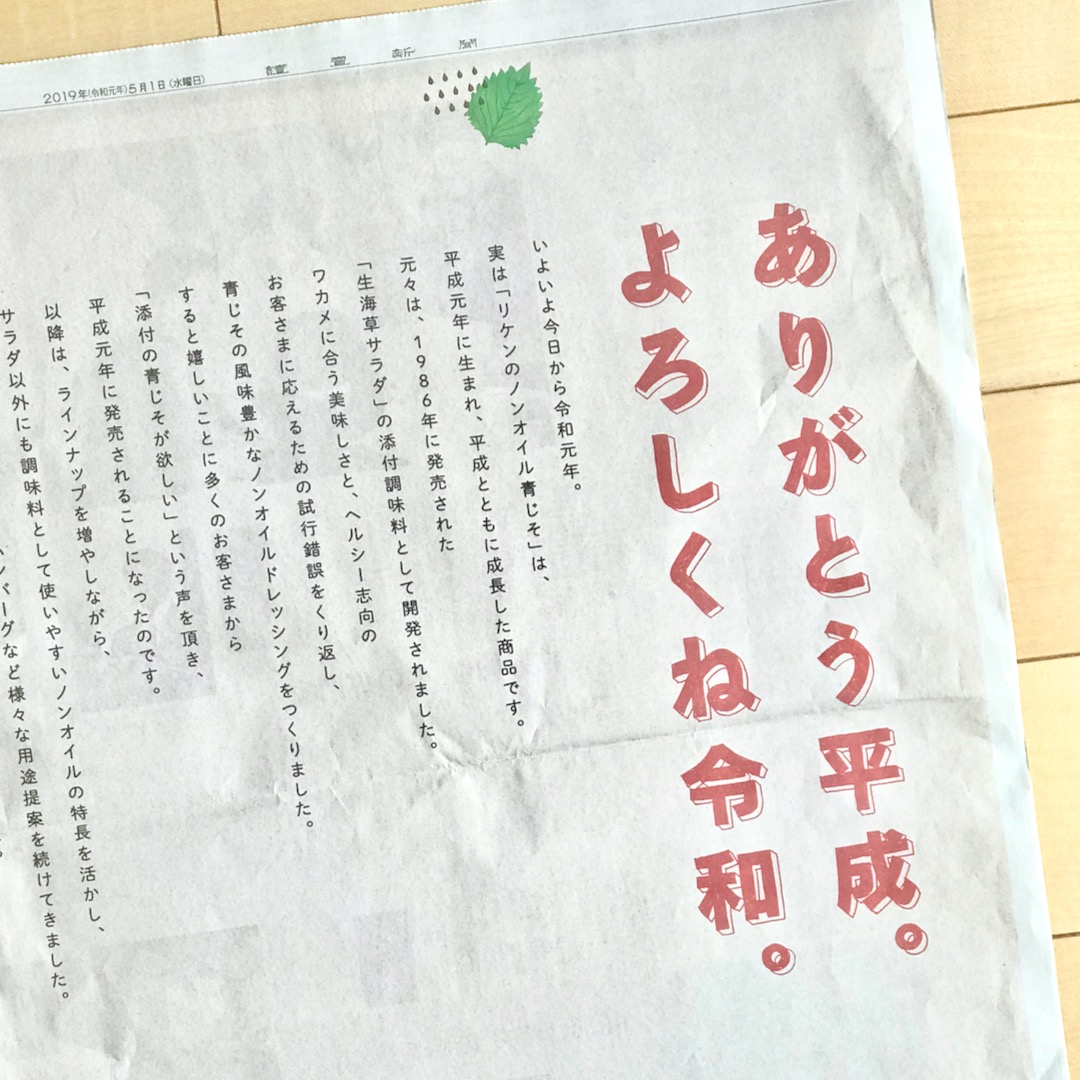 2019年(令和元年)5月1日(水曜日)
讀賣新聞
ありがとう平成。
よろしくね令和。
いよいよ今日から令和元年。
実は「リケンのノンオイル青じそ」は、
平成元年に生まれ、平成とともに成長した商品です。
元々は、1986年に発売された
「生海草サラダ」の添付調味料として開発されました。
ワカメに合う美味しさと、ヘルシー志向の
お客さまに応えるための試行錯誤をくり返し、
青じその風味豊かなノンオイルドレッシングをつくりました。
すると嬉しいことに多くのお客さまから
「添付の青じそが欲しい」という声を頂き、
平成元年に発売されることになったのです。
以降は、ラインナップを増やしながら、
サラダ以外にも調味料として使いやすいノンオイルの特長を活かし、
ンバーグなど様々な用途提案を続けてきました。